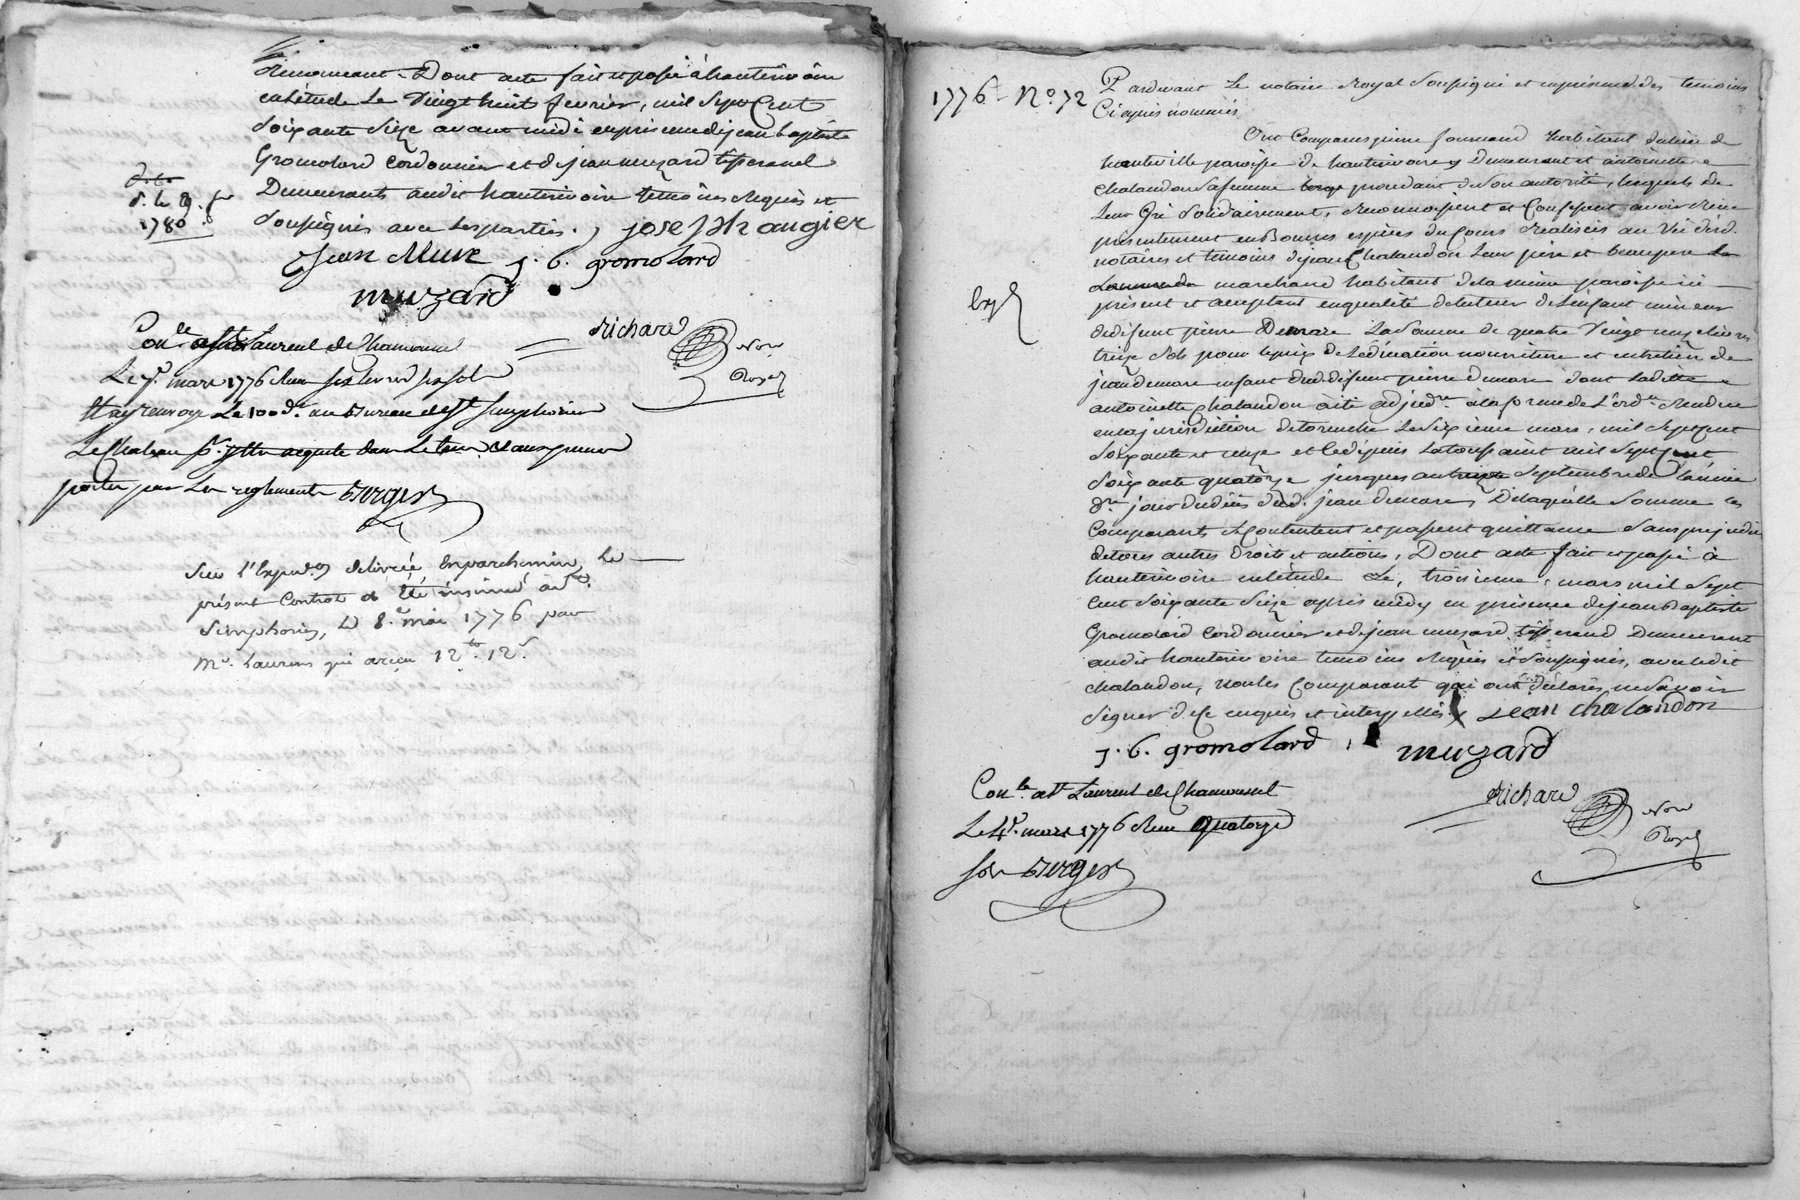 Dont acte fait et passé à hauterivoire
en létude Le Vingt huit fevrier, mil Sept Cent
Soixante Sieze avant midi en presence de jean baptiste
Gromolard cordonnier et de jean muzard tisserand
Demeurants audit hauterivoire temoins Requis et
Soussignés avec les parties. joseph augier
d. le 9.
1780
jean Mure j. b. gromolard
muzard
Richard
Not.
Royal
Con.le a St Laurent de Chamousset
Le 7. mars 1776 Reçu six livres six sols
Le 100.e au Bureau de St Simphorien
Le Chateau
portées par les reglements Burger
Sur l'Exped.on delivrée en parchemin, Le
présent Contrat a été insinué à St
Simphorien, le 8.e mai 1776 par
M.e Laurens qui a reçu 12.tt 12.s
1776 - N.o 72
Pardevant Le notaire Royal Soussigné et en présence des temoins
Ci après nommés
hauteville paroisse de hauterivoire y Demeurant et antoinette
chalandon Sa femme procedant de Son autorité, lesquels de
Leur Gré Solidairement, Reconnoissent et Confessent avoir Reçu
présentement en Bonnes espèces du Cours Réalisées au Vû desd.
notaires et témoins de jean Chalandon Leur père et beaupere
marchand habitant de la même paroisse ici
présent et acceptant en qualité de tuteur de Lenfant mineur
de défunt pierre Demare La Somme de quatre Vingt onze livres
treize Sols pour le prix de Léducation nourriture et entretien de
jean demare enfant dud. défunt pierre demare dont Ladite
antoinette chalandon a été adjud.re a la forme de L'ord.ce Rendue
en la jurisdiction de Le Sixieme mars, mil Septcent
Soixante et onze et ce depuis La toussaint mil Sept Cent
Soixante quatorze jusques au Septembre de Lannée
d.re jour du décès dud. jean demare, De laquelle Somme les
Comparants Se Contentent et passent quittance Sans préjudice
de tous autres Droits et actions, Dont acte fait et passé à
hauterivoire en létude Le, troisieme, mars mil Sept
Cent Soixante Sieze après midy en présence de jean Baptiste
Gromolard Cordonnier et de jean muzard tisserand Demeurant
audit hauterivoire temoins Requis et Soussignés, avec ledit
chalandon, non les Comparant qui ont déclarés ne Savoir
Signer de Ce enquis et interpellés jean chalandon
j. b. gromolard muzard
Richard
Not.
Royal
Con.le a St Laurent de Chamousset
Le 4. mars 1776 Reçu quatorze
sols Burger